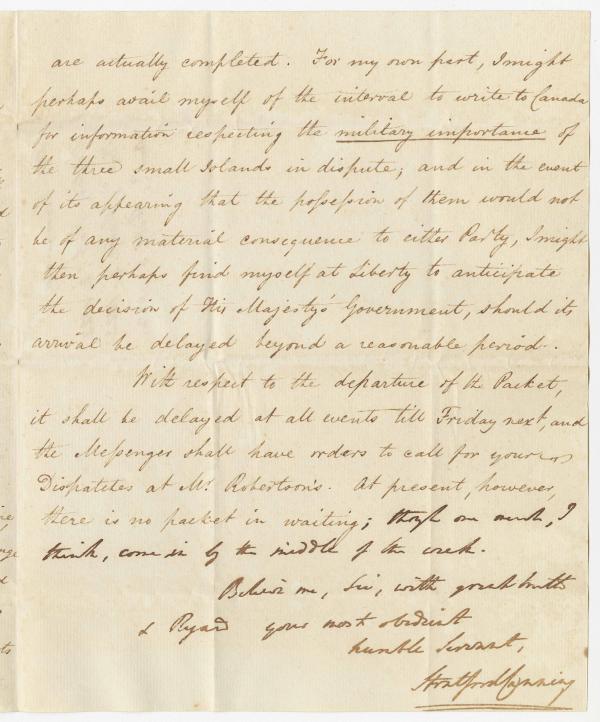 are actually completed. For my own part, I might
perhaps avail myself of the interval to write to Canada
for information respecting the military importance of
the three small Islands in dispute; and in the event
of its appearing that the possession of them would not
be of any material consequence to either Party, I might
then perhaps find myself at Liberty to anticipate
the decision of His Majesty's Government, should its
arrival be delayed beyond a reasonable period.
With respect to the departure of the Packet,
it shall be delayed at all events till Friday next, and
the Messenger shall have orders to call for your
Dispatches at Mr. Robertson's. At present, however,
there is no packet in waiting; though one must, I
think, come in by the middle of the week.
Believe me, Sir, with great truth
& Regard your most obedient
humble Servant,
Stratford Canning